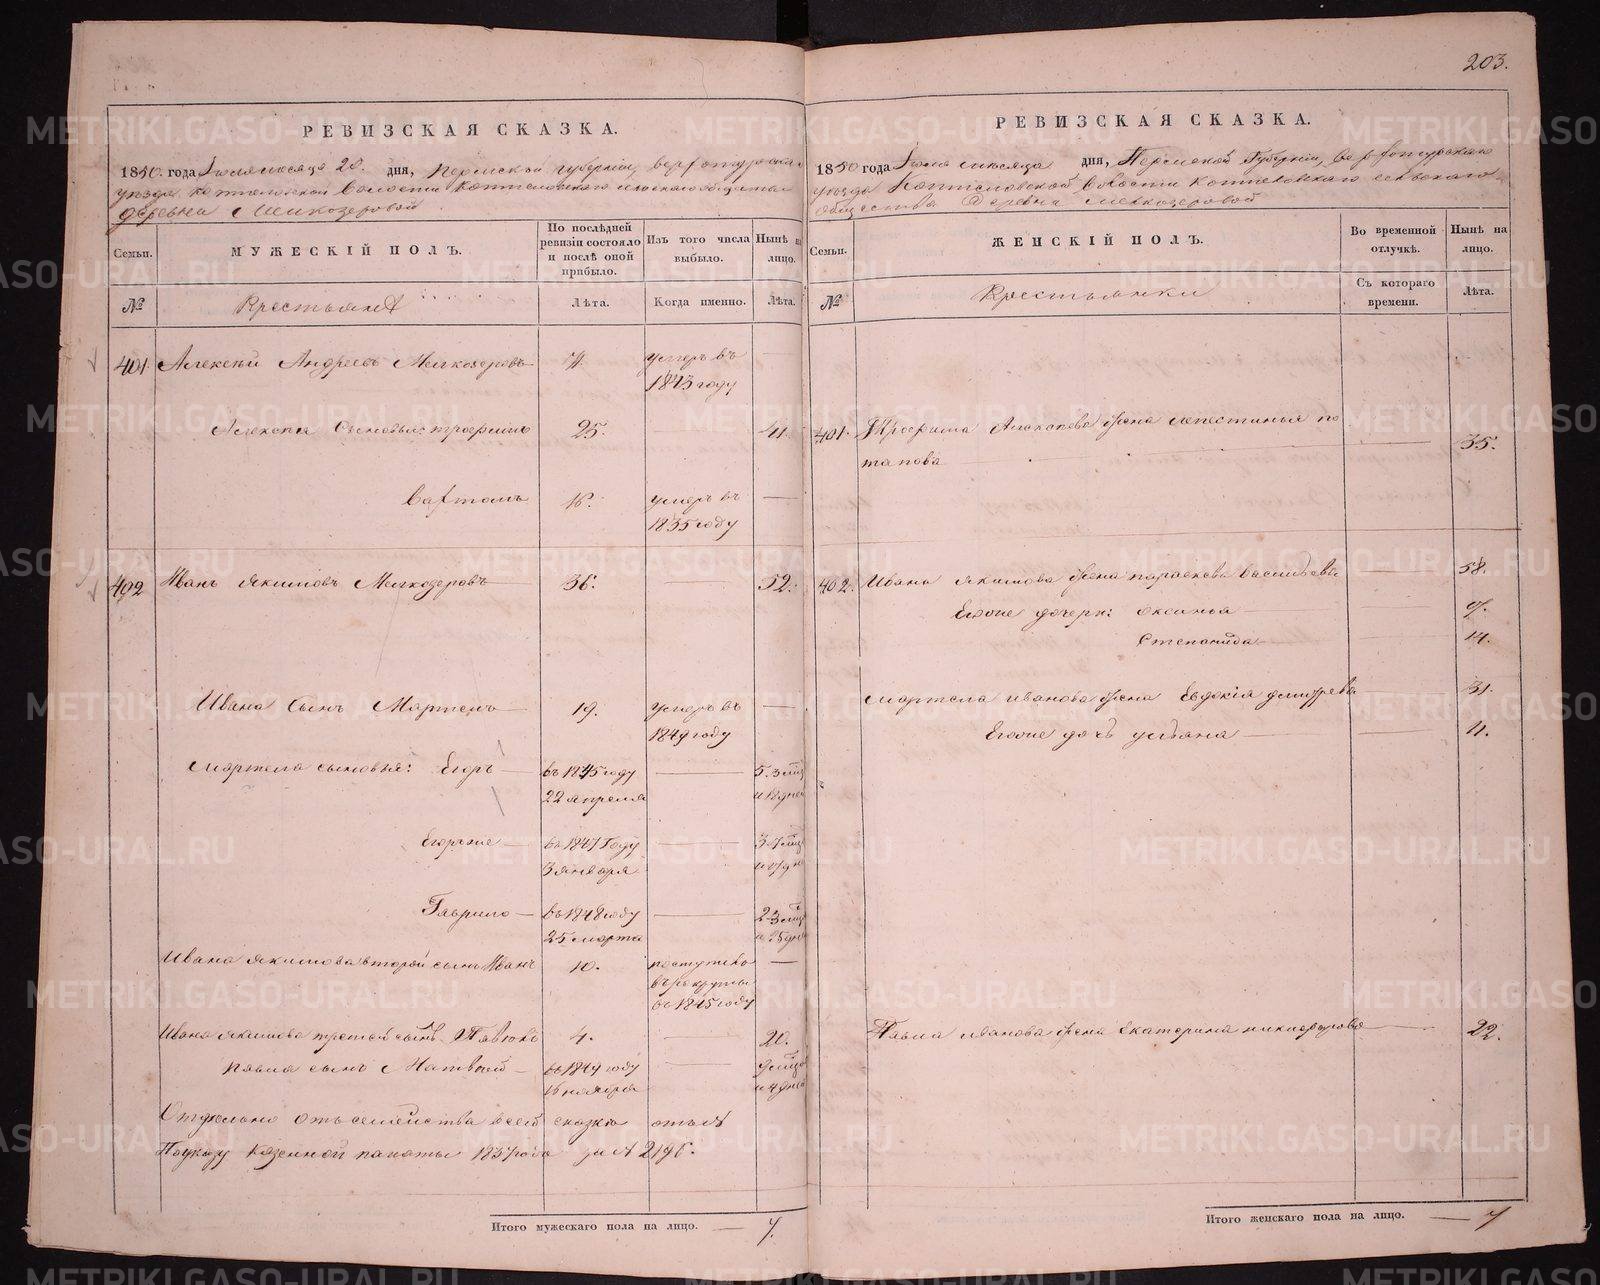 203.
РЕВИЗСКАЯ СКАЗКА.
1850. года Июля месяца 20. дня, Пермской губернии, Верхотурскаго
уезда Коптеловской волости Коптеловскаго сельскаго общества
деревни Мелкозеровой
Семьи.
МУЖЕСКІЙ ПОЛЪ.
По послѣдней
ревизіи состояло
и послѣ оной
прибыло.
Изъ того числа
выбыло.
Нынѣ на
лицо.
№
Крестьяне
Лѣта.
Когда именно.
Лѣта.
401. Алексѣй Андреевъ Мелкозеровъ умеръ въ
1843 году
Алексѣя сыновья: трофимъ 25. 41.
16. умеръ въ
1835 году
402 Иванъ Якимовъ Мелкозеровъ 36. 52.
Ивана сынъ Мартемъ 19. умеръ въ
1849 году
Мартема сыновья: Егоръ въ 1845 году 5. 3 мѣц
22 апреля
въ 1847 году
3 января
Гаврило въ 1848 году 2 3 мѣц
25 марта
Ивана Якимова второй сынъ Иванъ 10. поступилъ
въ рекруты
въ 1845 году
Ивана Якимова третей сынъ 4. 20.
сынъ Матвей въ 1849 году
16 ноября
Отдельно отъ семейства всей сказки
По указу Казенной палаты 1837 года за № 2196.
Итого мужескаго пола на лицо. 7.
РЕВИЗСКАЯ СКАЗКА.
1850 года Июля месяца дня, Пермской Губерніи, Верхотурскаго
уезда Коптеловской волости Коптеловскаго сельскаго
общества деревни Мелкозеровой
Семьи.
ЖЕНСКІЙ ПОЛЪ.
Во временной
отлучкѣ.
Нынѣ на
лицо.
№
Крестьянки
Съ котораго
времени.
Лѣта.
401. Трофима Алексѣева жена по
тапова 35.
402. Ивана Якимова жена параскева васильева 58.
Егоже дочери: оксинья
Степанида 14.
Мартема иванова жена Евдокія дмитрева 31.
Егоже дочь ульяна 11.
Павла иванова жена Екатерина никифорова 22.
Итого женскаго пола на лицо. 7